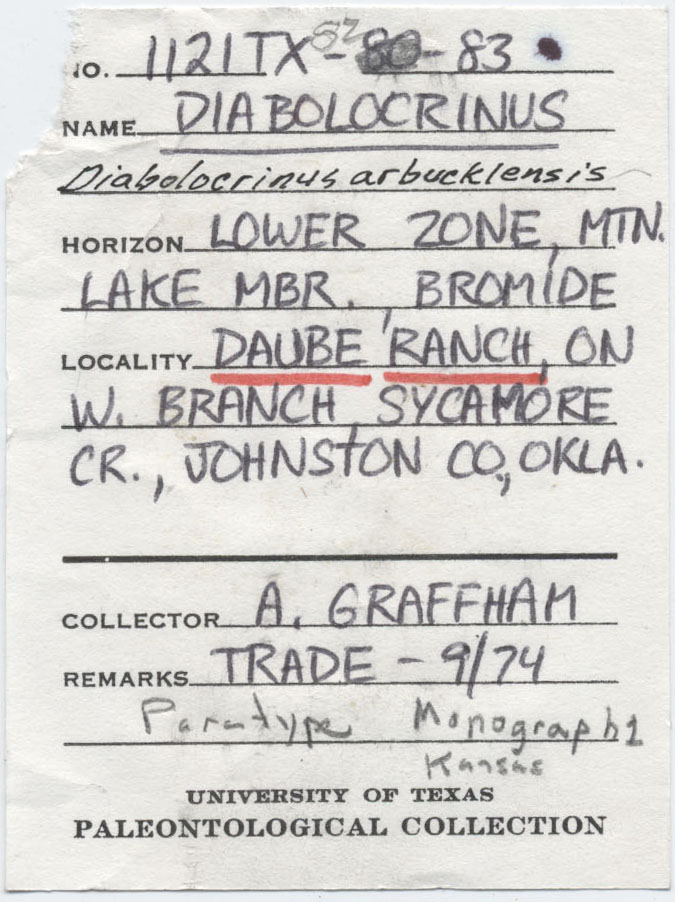 NO. 1121TX-82-83
NAME DIABOLOCRINUS
Diabolocrinus arbucklensis
HORIZON LOWER ZONE, MTN.
LAKE MBR., BROMIDE
LOCALITY DAUBE RANCH, ON
W. BRANCH SYCAMORE
CR., JOHNSTON CO., OKLA.
COLLECTOR A. GRAFFHAM
REMARKS TRADE - 9/74
Paratype Monograph 1
Kansas
UNIVERSITY OF TEXAS
PALEONTOLOGICAL COLLECTION